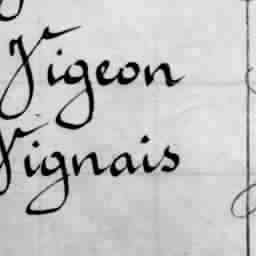 Vigeon
Vignais